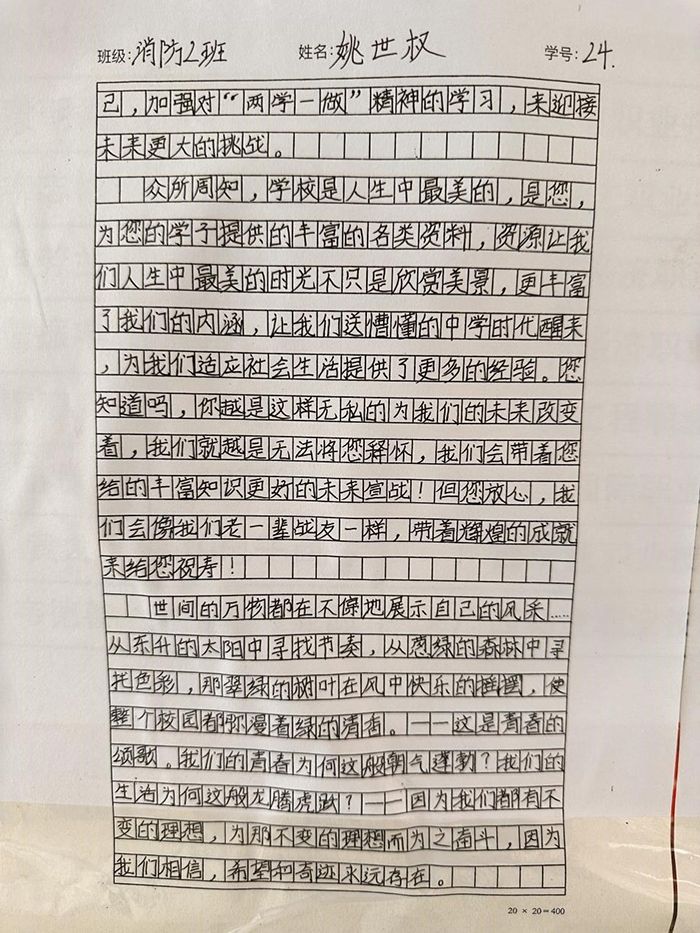 班级: 消防2班 姓名: 姚世权 学号: 24.
己，加强对“两学一做”精神的学习，来迎接
未来更大的挑战。
众所周知，学校是人生中最美的，是您，
为您的学子提供的丰富的各类资料，资源让我
们人生中最美的时光不只是欣赏美景，更丰富
了我们的内涵，让我们送懵懂的中学时代醒来
，为我们适应社会生活提供了更多的经验。您
知道吗，你越是这样无私的为我们的未来改变
着，我们就越是无法将您释怀，我们会带着您
给的丰富知识更好的未来宣战！但您放心，我
们会像我们老一辈战友一样，带着辉煌的成就
来给您祝寿！
世间的万物都在不停地展示自己的风采……
从东升的太阳中寻找节奏，从葱绿的森林中寻
找色彩，那翠绿的树叶在风中快乐的摇摆，使
整个校园都弥漫着绿的清香。——这是青春的
颂歌。我们的青春为何这般朝气蓬勃？我们的
生活为何这般龙腾虎跃？——因为我们都有不
变的理想，为那不变的理想而为之奋斗，因为
我们相信，希望和奇迹永远存在。
20 × 20=400